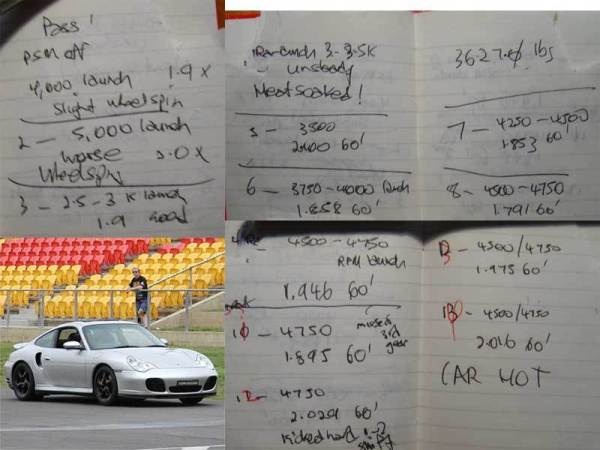 Pass 1
PSM off
4,000 launch 1.9x
slight wheelspin
2 - 5,000 launch
worse 2.0x
wheelspin
3 - 2.5 - 3K launch
1.9 good
launch 3-3.5K
- unsteady
Heatsoaked!
5 - 3500
60'
6 - 3750-4000 launch
1.858 60'
lbs
7 - 4250-4500
1.853 60'
8 - 4500-4750
1.791 60'
4500-4750
RPM launch
1.946 60'
- 4750
missed
3rd
gear
1.895 60'
- 4750
2.029 60'
kicked hard
- 4500/4750
1.975 60'
- 4500/4750
2.016 60'
CAR HOT